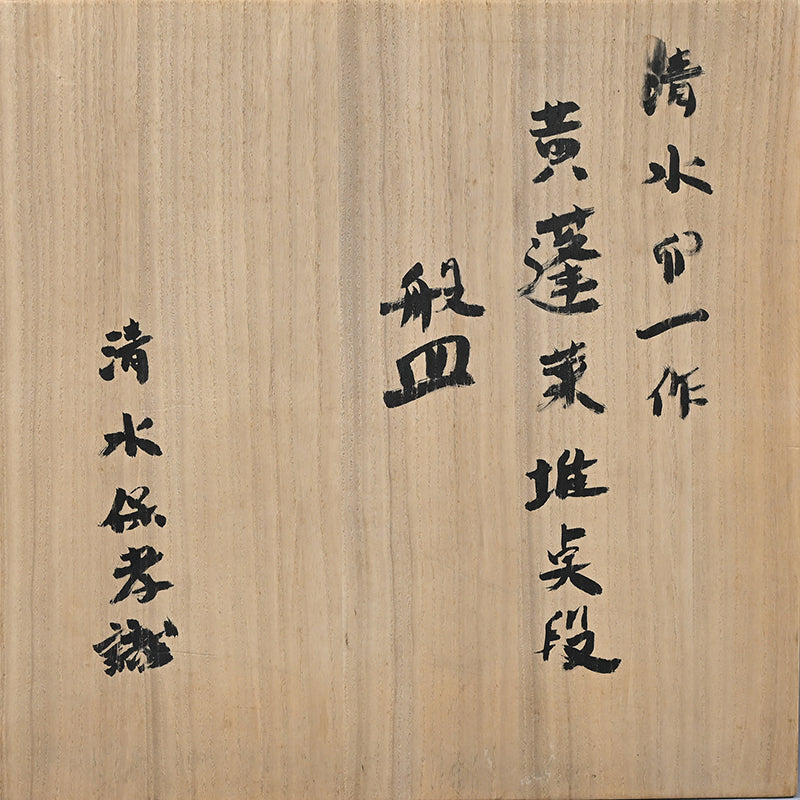 清水卯一作
黄蓬莱堆点段
盤
清水保孝識